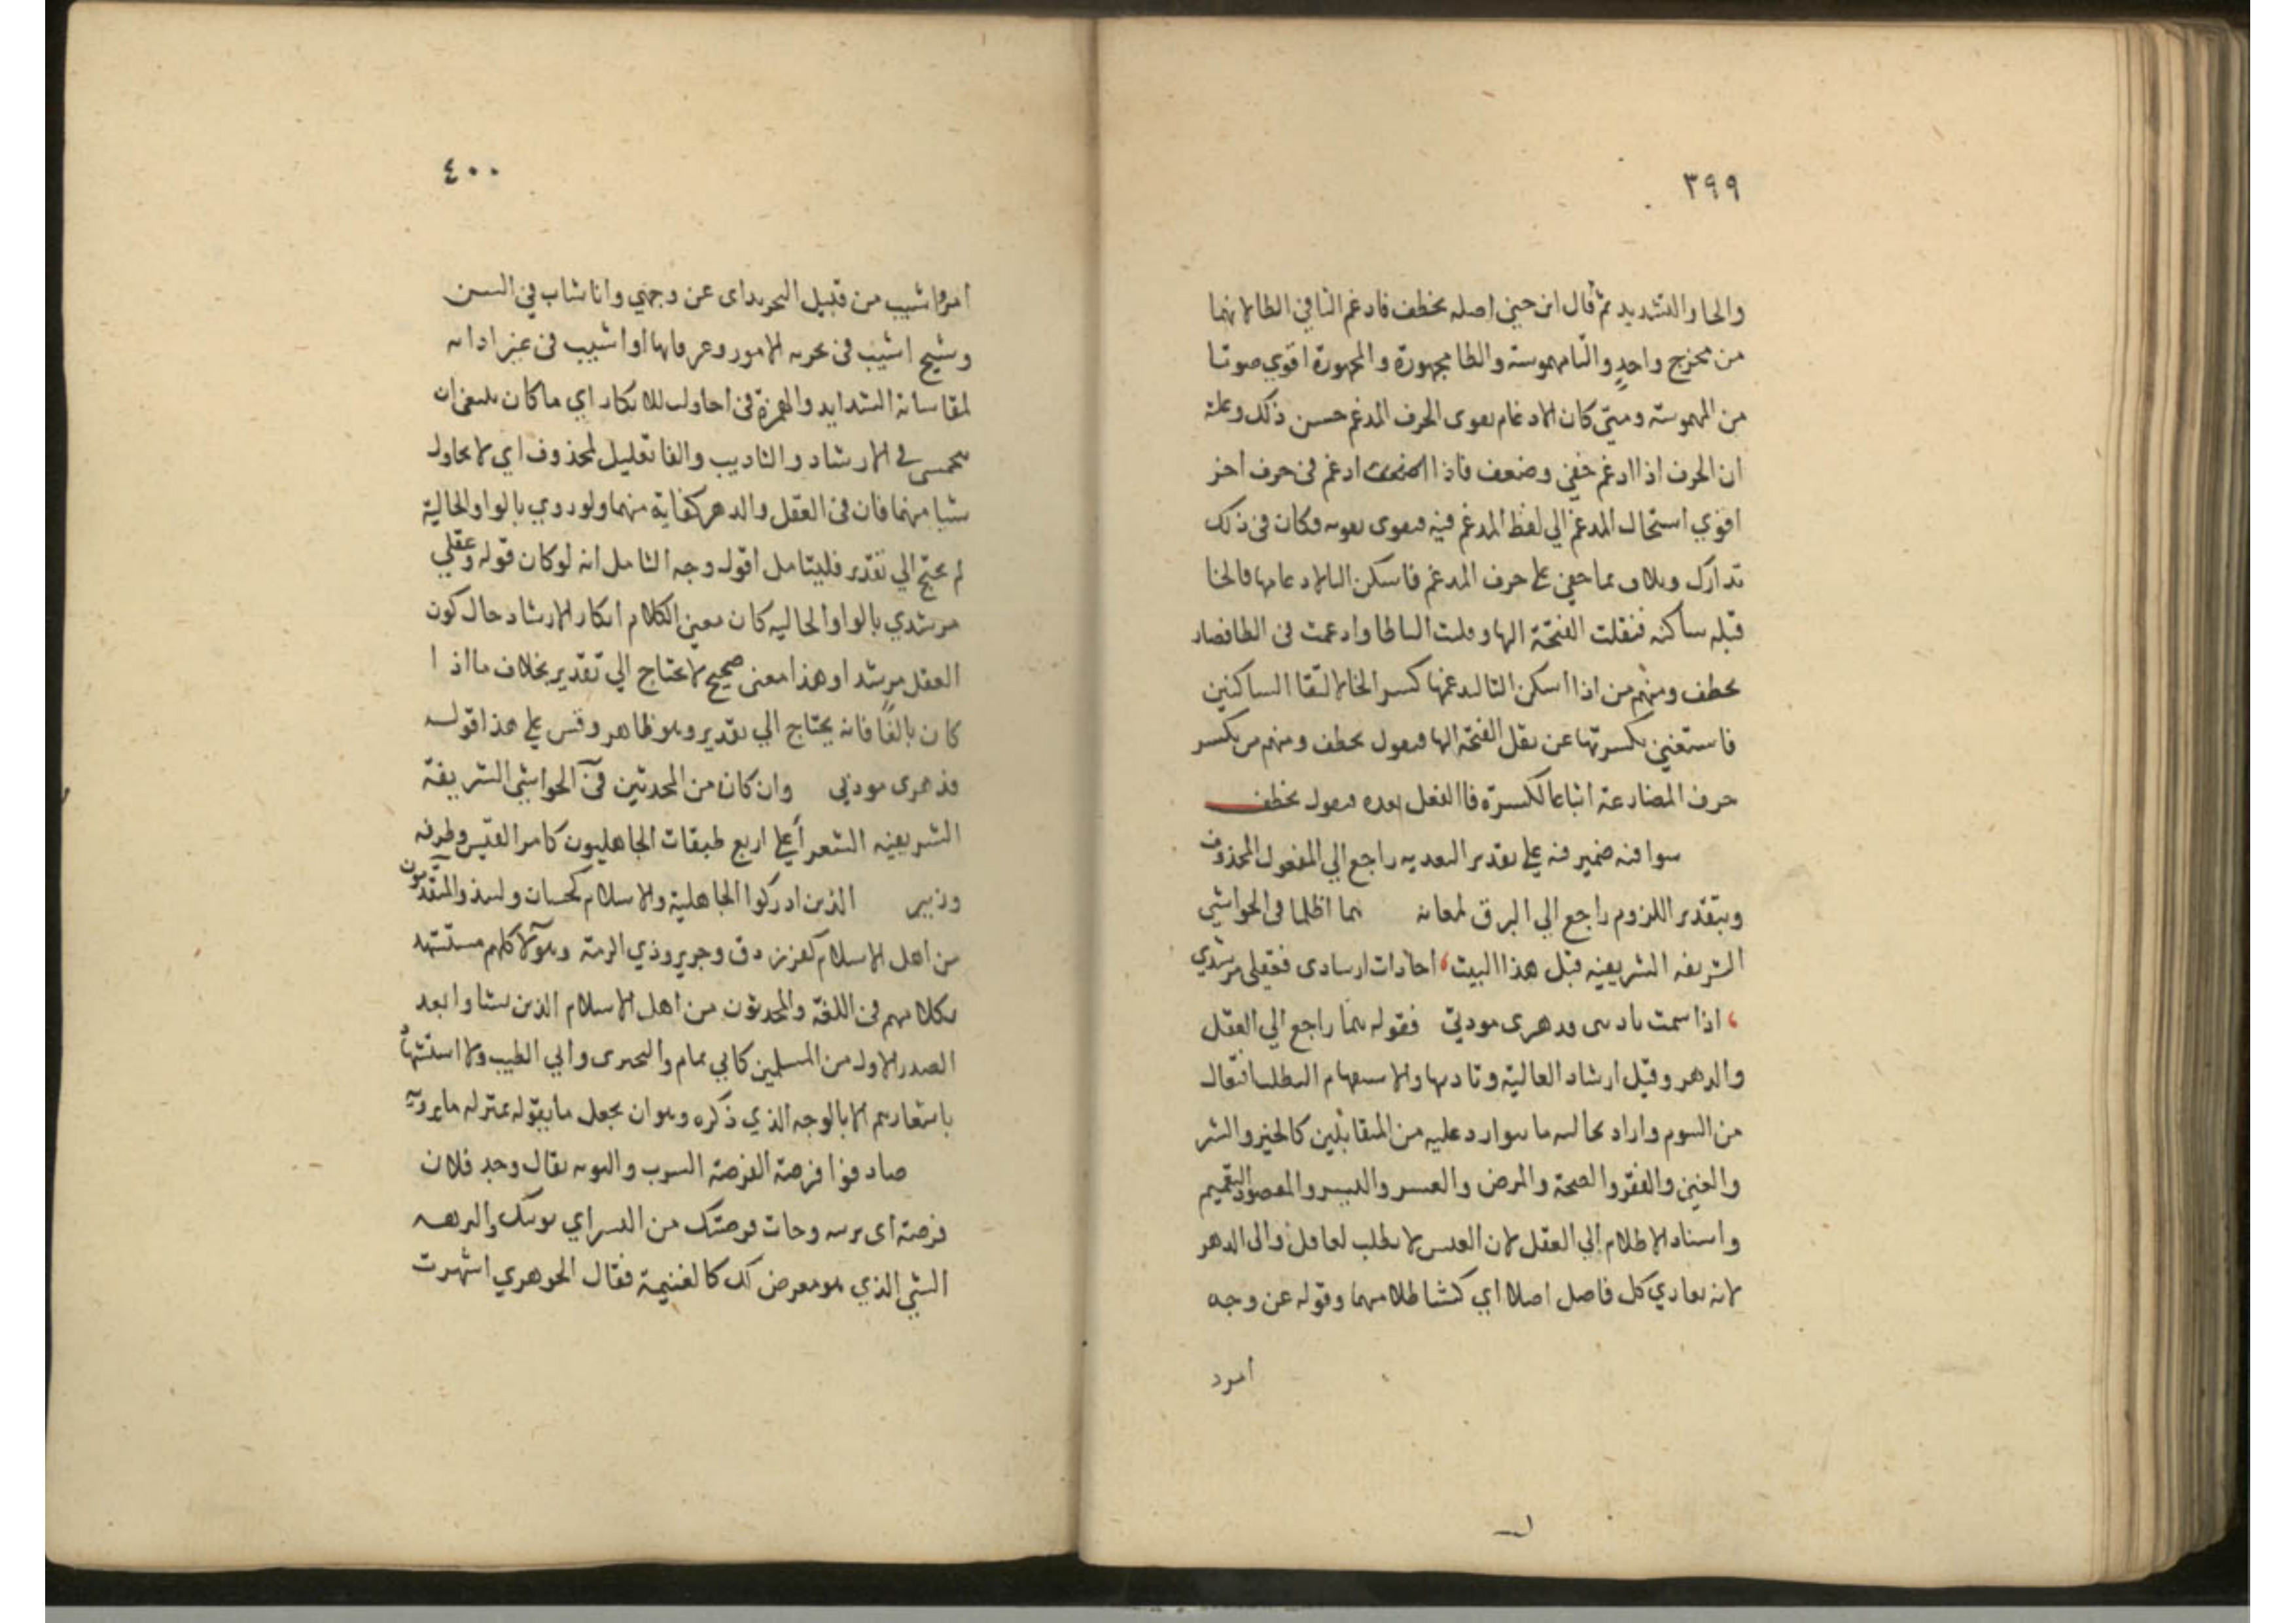 ٣٩٩
والحا والتشديد ثم قال ابن جني اصله يخطف فادغم التا في الطا لانهما
من مخرج واحد والتا مهموسة والطا مجهورة والمجهورة اقوي صوتا
من المهموسة ومتي كان الادغام يقوى الحرف المدغم حسن ذلك وعلته
ان الحرف اذا ادغم خفي وضعف فاذا ادغم في حرف اخر
اقوي استحال المدغم الي لفظ المدغم فيه فيقوى بقوته فكان في ذلك
تدارك وتلاف مما خفي علي حرف المدغم فاسكن التا لادغامها والخا
قبله ساكنه فنقلت الفتحة اليها وقلبت التا طا وادغمت في الطا فصار
يخطف ومنهم من اذا اسكن التا ليدغمها كسر الخا لالتقا الساكنين
فاستغني بكسرتها عن نقل الفتحة اليها فيقول يخطف ومنهم من يكسر
حرف المضارعة اتباعا لكسرة فا الفعل بعده فيقول يخطف
سوا فيه ضمير فيه علي تقدير التعديه راجع الي المفعول المحذوف
وبتقدير اللزوم راجع الي البرق لمعانه هما اظلما في الحواشي
الشريفه الشريفيه قبل هذا البيت احاولت ارشادى فعقلي مرشدي
اذا سمت تاديبى فدهرى مودبي فقوله هما راجع الي العقل
والدهر وقيل ارشاد العاليه وتاديبها والاستفهام التطلب افتعال
من السوم واراد بحاليه ما يتوارد عليه من المتقابلين كالخير والشر
والغني والفقر والصحة والمرض والعسر واليسر والمقصود التعميم
واسناد الاظلام الي العقل لان العيش لا يطيب لعاقل والي الدهر
لانه يعادي كل فاضل اصلا اي كشفا ظلاميهما وقوله عن وجه
امرد
٤٠٠
امرد اشيب من قبيل التجريد اى عن وجهي وانا شاب في السن
وشيخ اشيب في تجربه الامور وعرفانها او اشيب في غير اوانه
لمقاساته الشدايد والهمزة في احاولت للانكار اي ما كان ينبغي ان
في الارشاد والتاديب والفا تعليل لمحذوف اي لا تحاول
شيا منهما فان في العقل والدهر كفاية منهما ولو روي بالواو الحالية
لم يحتج الي تقدير فليتامل اقول وجه التامل انه لو كان قوله وعقلي
مرشدي بالواو الحاليه كان معني الكلام انكار الارشاد حال كون
العقل مرشدا وهذا معني صحيح لا يحتاج الي تقدير بخلاف ما اذا
كان بالفا فانه يحتاج الي تقدير وهو ظاهر وقس علي هذا قوله
فدهرى مودبي وان كان من المحدثين في الحواشي الشريفة
الشريفيه الشعرا علي اربع طبقات الجاهليون كامرا القيس وطرفه
وزهير الذين ادركوا الجاهلية والاسلام كحسان ولبيد والمتقدمون
من اهل الاسلام كفرزدق وجرير وذي الرمة وهولا كلهم مستشهد
بكلامهم في اللغة والمحدثون من اهل الاسلام الذين نشاوا بعد
الصدر الاول من المسلمين كابي تمام والبحترى وابي الطيب ولا استشهاد
باشعارهم الا بالوجه الذي ذكره وهو ان يجعل ما يقوله بمنزله ما يرويه
صادفوا فرصة الفرصة الشرب والنوبه يقال وجد فلان
فرصة اى نوبته وجات فرصتك من البير اي نوبتك
الشي الذي هو معرض لك كالغنيمة فقال الجوهري انتهزت